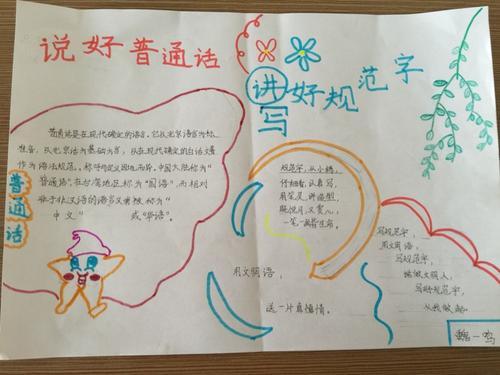 说好普通话
讲写好规范字
普通话
普通话是在现代确定的语言。它以北京语音为标
准音，以北京话为基础方言，从在现代确定的白话文著
作为语法规范。称呼
中国大陆称为“
普通话”，在台湾地区称为“国语”，而相对
来于
汉语的语多又
被称为“
中文”
或“华语”。
规范字，从小练，
仔细看，认真写，
用笔灵，讲造型，
既悦目，又赏心，
一笔一画
生命。
用文明语，
送一片真情情。
写规范字，
用文明语，
写规范字，
做文明人，
写好规范字，
从我做起。
魏一鸣